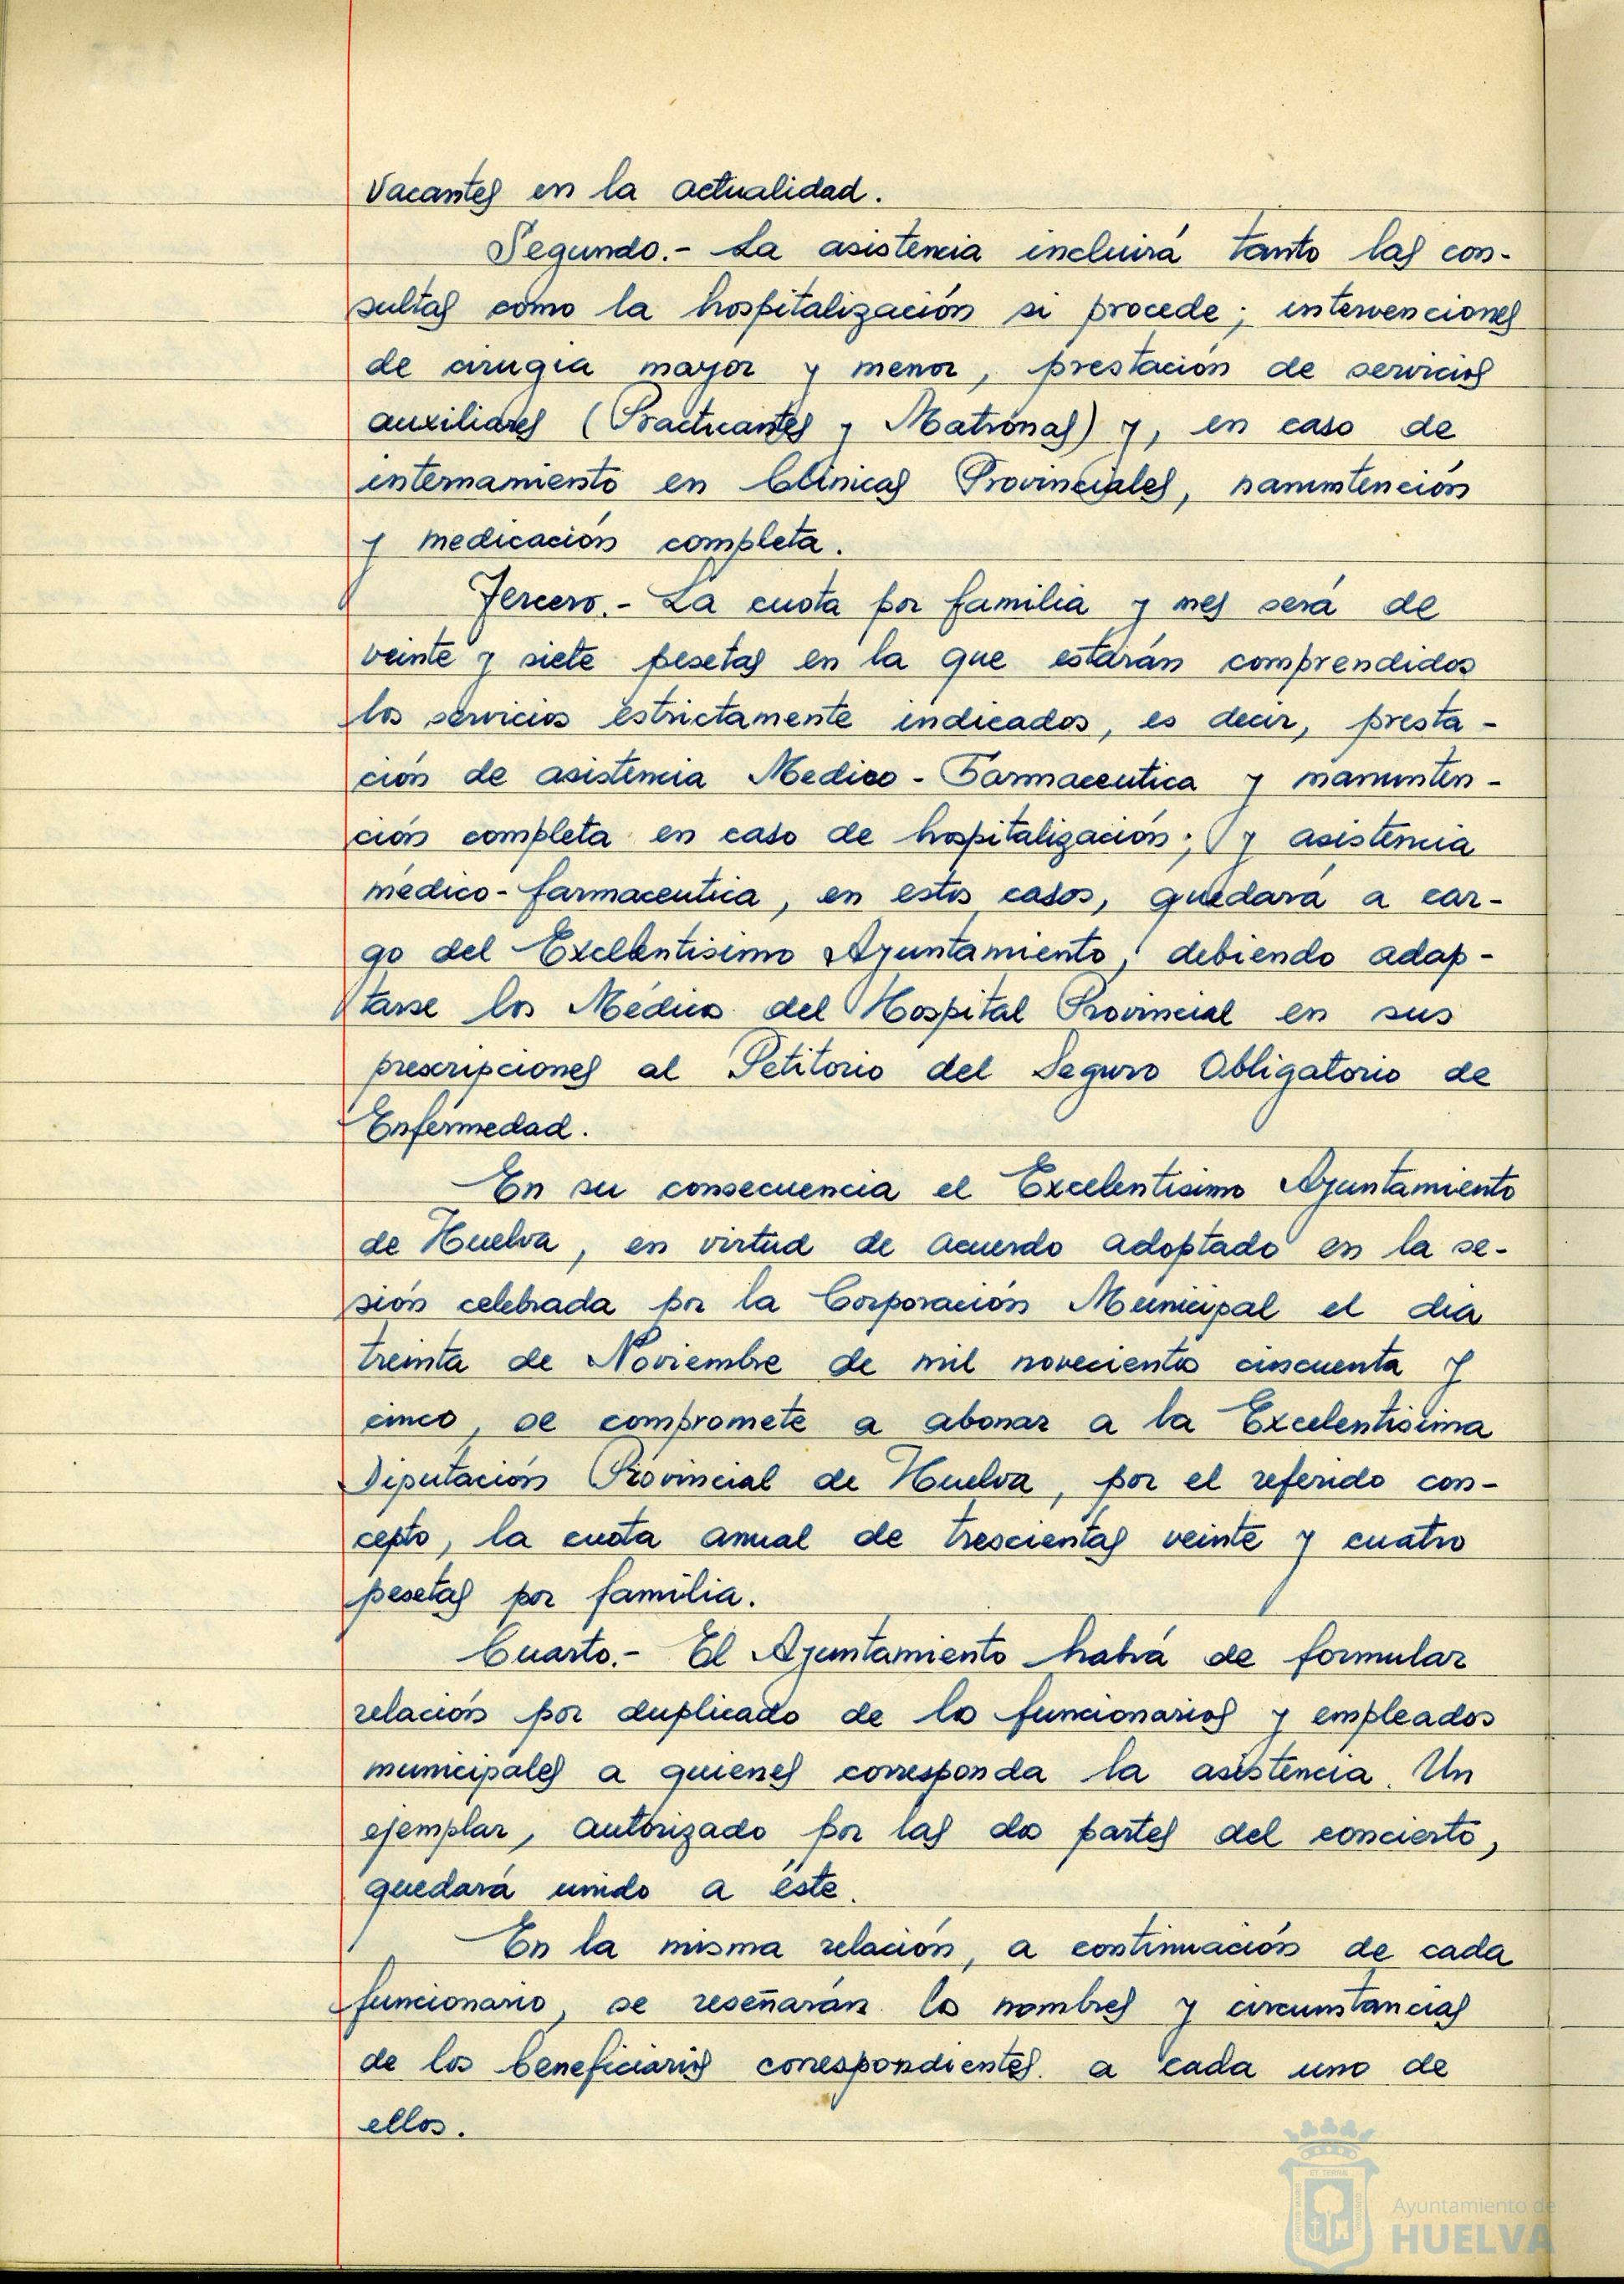 Vacantes en la actualidad.
Segundo.- La asistencia incluirá tanto las con-
sultas como la hospitalización si procede; intervenciones
de cirugia mayor y menor, prestación de servicios
auxiliares (Practicantes y Matronas) y, en caso de
internamiento en Clínicas Provinciales, manuntención
y medicación completa.
Tercero.- La cuota por familia y mes será de
veinte y siete pesetas en la que estarán comprendidos
los servicios estrictamente indicados, es decir, presta-
ción de asistencia Medico-Farmaceutica y manunten-
ción completa en caso de hospitalización; y asistencia
médico-farmaceutica, en estos casos, quedará a car-
go del Excelentisimo Ayuntamiento, debiendo adap-
tarse los Médicos del Hospital Provincial en sus
prescripciones al Petitorio del Seguro Obligatorio de
Enfermedad.
En su consecuencia el Excelentisimo Ayuntamiento
de Huelva, en virtud de acuerdo adoptado en la se-
sión celebrada por la Corporación Municipal el dia
treinta de Noviembre de mil novecientos cincuenta y
cinco, se compromete a abonar a la Excelentisima
Diputación Provincial de Huelva, por el referido con-
cepto, la cuota anual de trescientas veinte y cuatro
pesetas por familia.
Cuarto.- El Ayuntamiento habrá de formular
relación por duplicado de los funcionarios y empleados
municipales a quienes corresponda la asistencia. Un
ejemplar, autorizado por las dos partes del concierto,
quedará unido a éste.
En la misma relación, a continuación de cada
funcionario, se reseñarán los nombres y circunstancias
de los beneficiarios correspondientes a cada uno de
ellos.
Ayuntamiento de
HUELVA